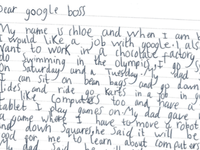 Dear google boss
My name is Chloe and when I am b
I would like a job with google. I als
want to work in a chocolate factory
do swimming in the olympics. I go S
on Saturday and a Tuesday. My dad
I can sit on bean bags and go down
slides and ride go karts in a
like computers too and have a
tablet I play games on. My dad gave
a game where I have to move a robot
and down squares, he said it
good for me to learn about computers
My dad said